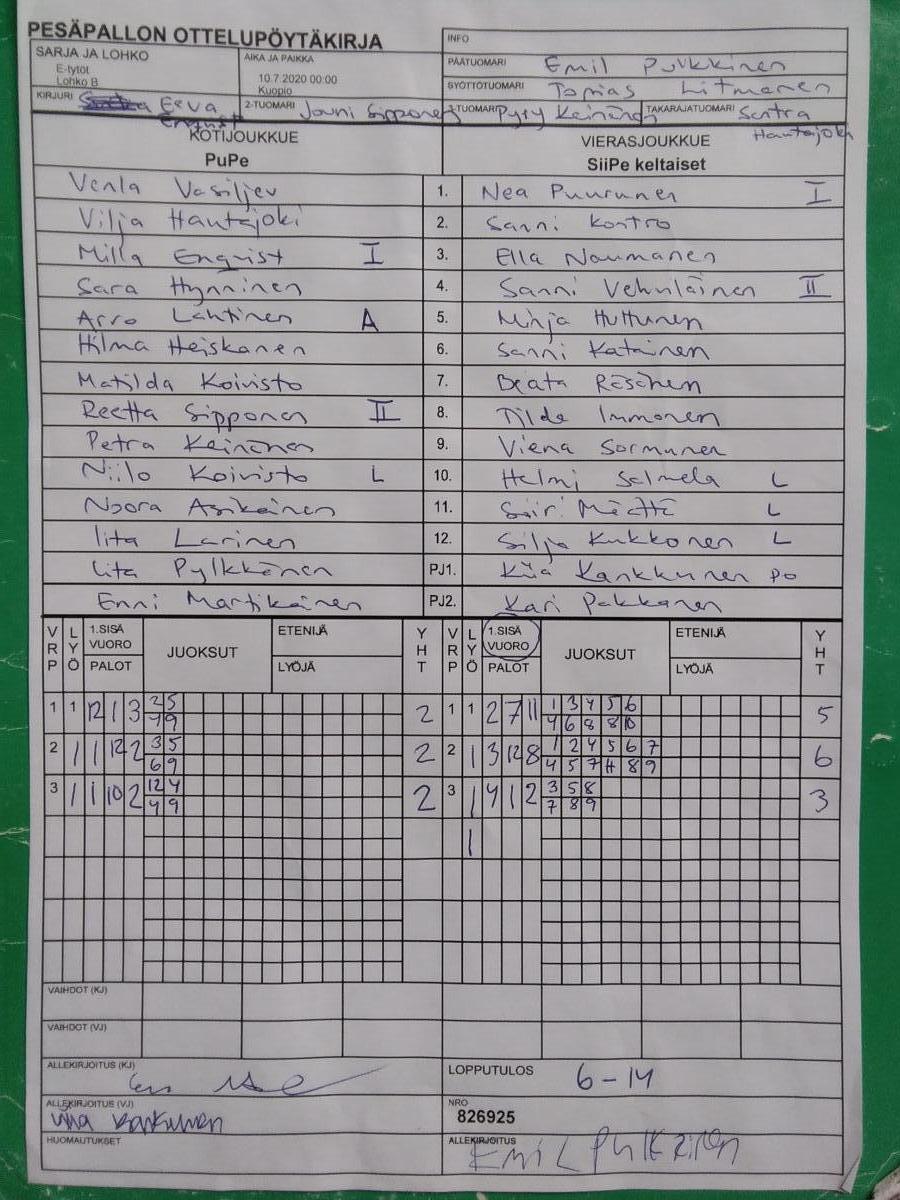 PESÄPALLON OTTELUPÖYTÄKIRJA
INFO
SARJA JA LOHKO
E-tytöt
Lohko B
AIKA JA PAIKKA
10.7.2020 00:00
Kuopio
PÄÄTUOMARI Emil Pulkkinen
SYÖTTÖTUOMARI Topias Litmanen
KIRJURI Eeva Enqvist
2-TUOMARI Jouni Sipponen
3-TUOMARI Pyry Keinänen
TAKARAJATUOMARI Santra Hautajoki
KOTIJOUKKUE
PuPe
VIERASJOUKKUE
SiiPe keltaiset
Venla Vasiljev 1. Nea Puurunen I
Vilja Hautajoki 2. Sanni Kontro
Milla Enqvist I 3. Ella Naumanen
Sara Hynninen 4. Sanni Vehviläinen II
Arro Lahtinen A 5. Minja Huttunen
Hilma Heiskanen 6. Sanni Katainen
Matilda Koivisto 7. Beata Räsänen
Reetta Sipponen II 8. Tilda Immonen
Petra Keinänen 9. Viena Sormunen
Niilo Koivisto L 10. Helmi Salmela L
Noora Asikainen 11. Siiri Määttä L
Iita Larinen 12. Silja Kukkonen L
Iita Pylkkänen PJ1. Kiia Kankkunen PO
Enni Martikainen PJ2. Kari Pakkanen
VRP LYÖ 1.SISÄ VUORO PALOT JUOKSUT ETENIJÄ LYÖJÄ YHT VRP LYÖ 1.SISÄ VUORO PALOT JUOKSUT ETENIJÄ LYÖJÄ YHT
1 1 12 1 3 2 5 2 1 1 2 7 11 1 3 4 5 6 5
7 9 4 6 8 8 10
2 1 1 12 2 3 5 2 2 1 3 12 8 1 2 4 5 6 7 6
6 9 4 5 7 11 8 9
3 1 1 10 2 12 4 2 3 1 4 1 2 3 5 8 3
4 9 7 8 9
1
VAIHDOT (KJ)
VAIHDOT (VJ)
ALLEKIRJOITUS (KJ)
LOPPUTULOS 6-14
ALLEKIRJOITUS (VJ) Kiia Kankkunen
NRO
826925
HUOMAUTUKSET
ALLEKIRJOITUS Emil Pulkkinen